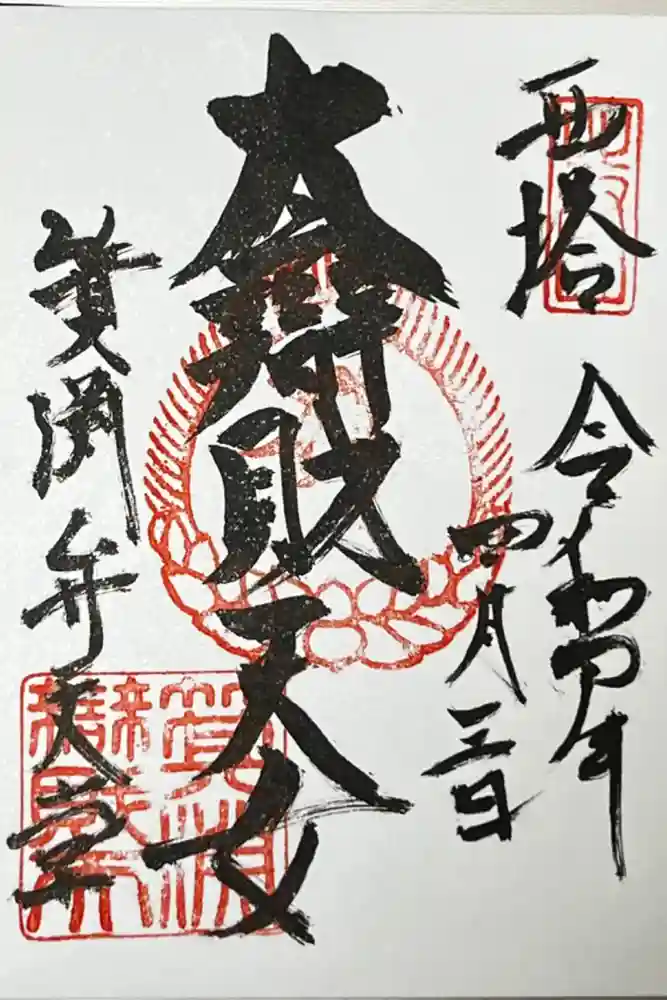 西塔
令和 年
四月三日
大辯財天女
箕淵弁天堂
箕淵
辯財天